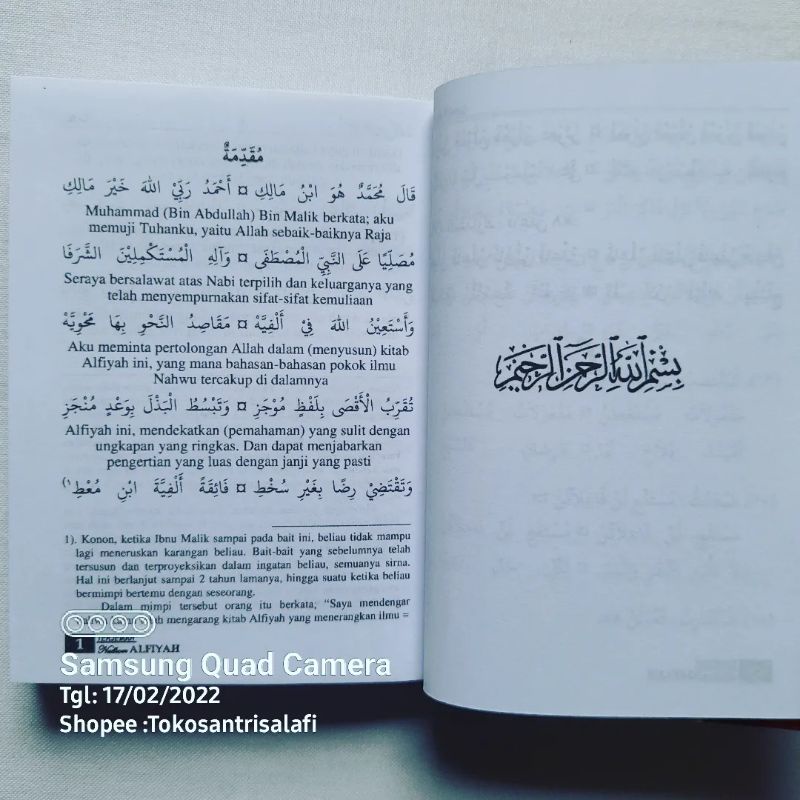 مُقَدِّمَةٌ
قَالَ مُحَمَّدٌ هُوَ ابْنُ مَالِكِ ¤ أَحْمَدُ رَبِّيْ اللهَ خَيْرَ مَالِكِ
Muhammad (Bin Abdullah) Bin Malik berkata; aku
memuji Tuhanku, yaitu Allah sebaik-baiknya Raja
مُصَلِّيًا عَلَى النَّبِيِّ الْمُصْطَفَى ¤ وَآلِهِ الْمُسْتَكْمِلِيْنَ الشَّرَفَا
Seraya bersalawat atas Nabi terpilih dan keluarganya yang
telah menyempurnakan sifat-sifat kemuliaan
وَأَسْتَعِيْنُ اللهَ فِيْ أَلْفِيَّهْ ¤ مَقَاصِدُ النَّحْوِ بِهَا مَحْوِيَّهْ
Aku meminta pertolongan Allah dalam (menyusun) kitab
Alfiyah ini, yang mana bahasan-bahasan pokok ilmu
Nahwu tercakup di dalamnya
تُقَرِّبُ الْأَقْصَى بِلَفْظٍ مُوْجَزِ ¤ وَتَبْسُطُ الْبَذْلَ بِوَعْدٍ مُنْجَزِ
Alfiyah ini, mendekatkan (pemahaman) yang sulit dengan
ungkapan yang ringkas. Dan dapat menjabarkan
pengertian yang luas dengan janji yang pasti
وَتَقْتَضِيْ رِضًا بِغَيْرِ سُخْطِ ¤ فَائِقَةً أَلْفِيَّةَ ابْنِ مُعْطِ ١)
1). Konon, ketika Ibnu Malik sampai pada bait ini, beliau tidak mampu
lagi meneruskan karangan beliau. Bait-bait yang sebelumnya telah
tersusun dan terproyeksikan dalam ingatan beliau, semuanya sirna.
Hal ini berlanjut sampai 2 tahun lamanya, hingga suatu ketika beliau
bermimpi bertemu dengan seseorang.
Dalam mimpi tersebut orang itu berkata, "Saya mendengar
mengarang kitab Alfiyah yang menerangkan ilmu =
1
Nadzom ALFIYAH
بِسْمِ اللهِ الرَّحْمٰنِ الرَّحِيْمِ
Samsung Quad Camera
Tgl: 17/02/2022
Shopee :Tokosantrisalafi